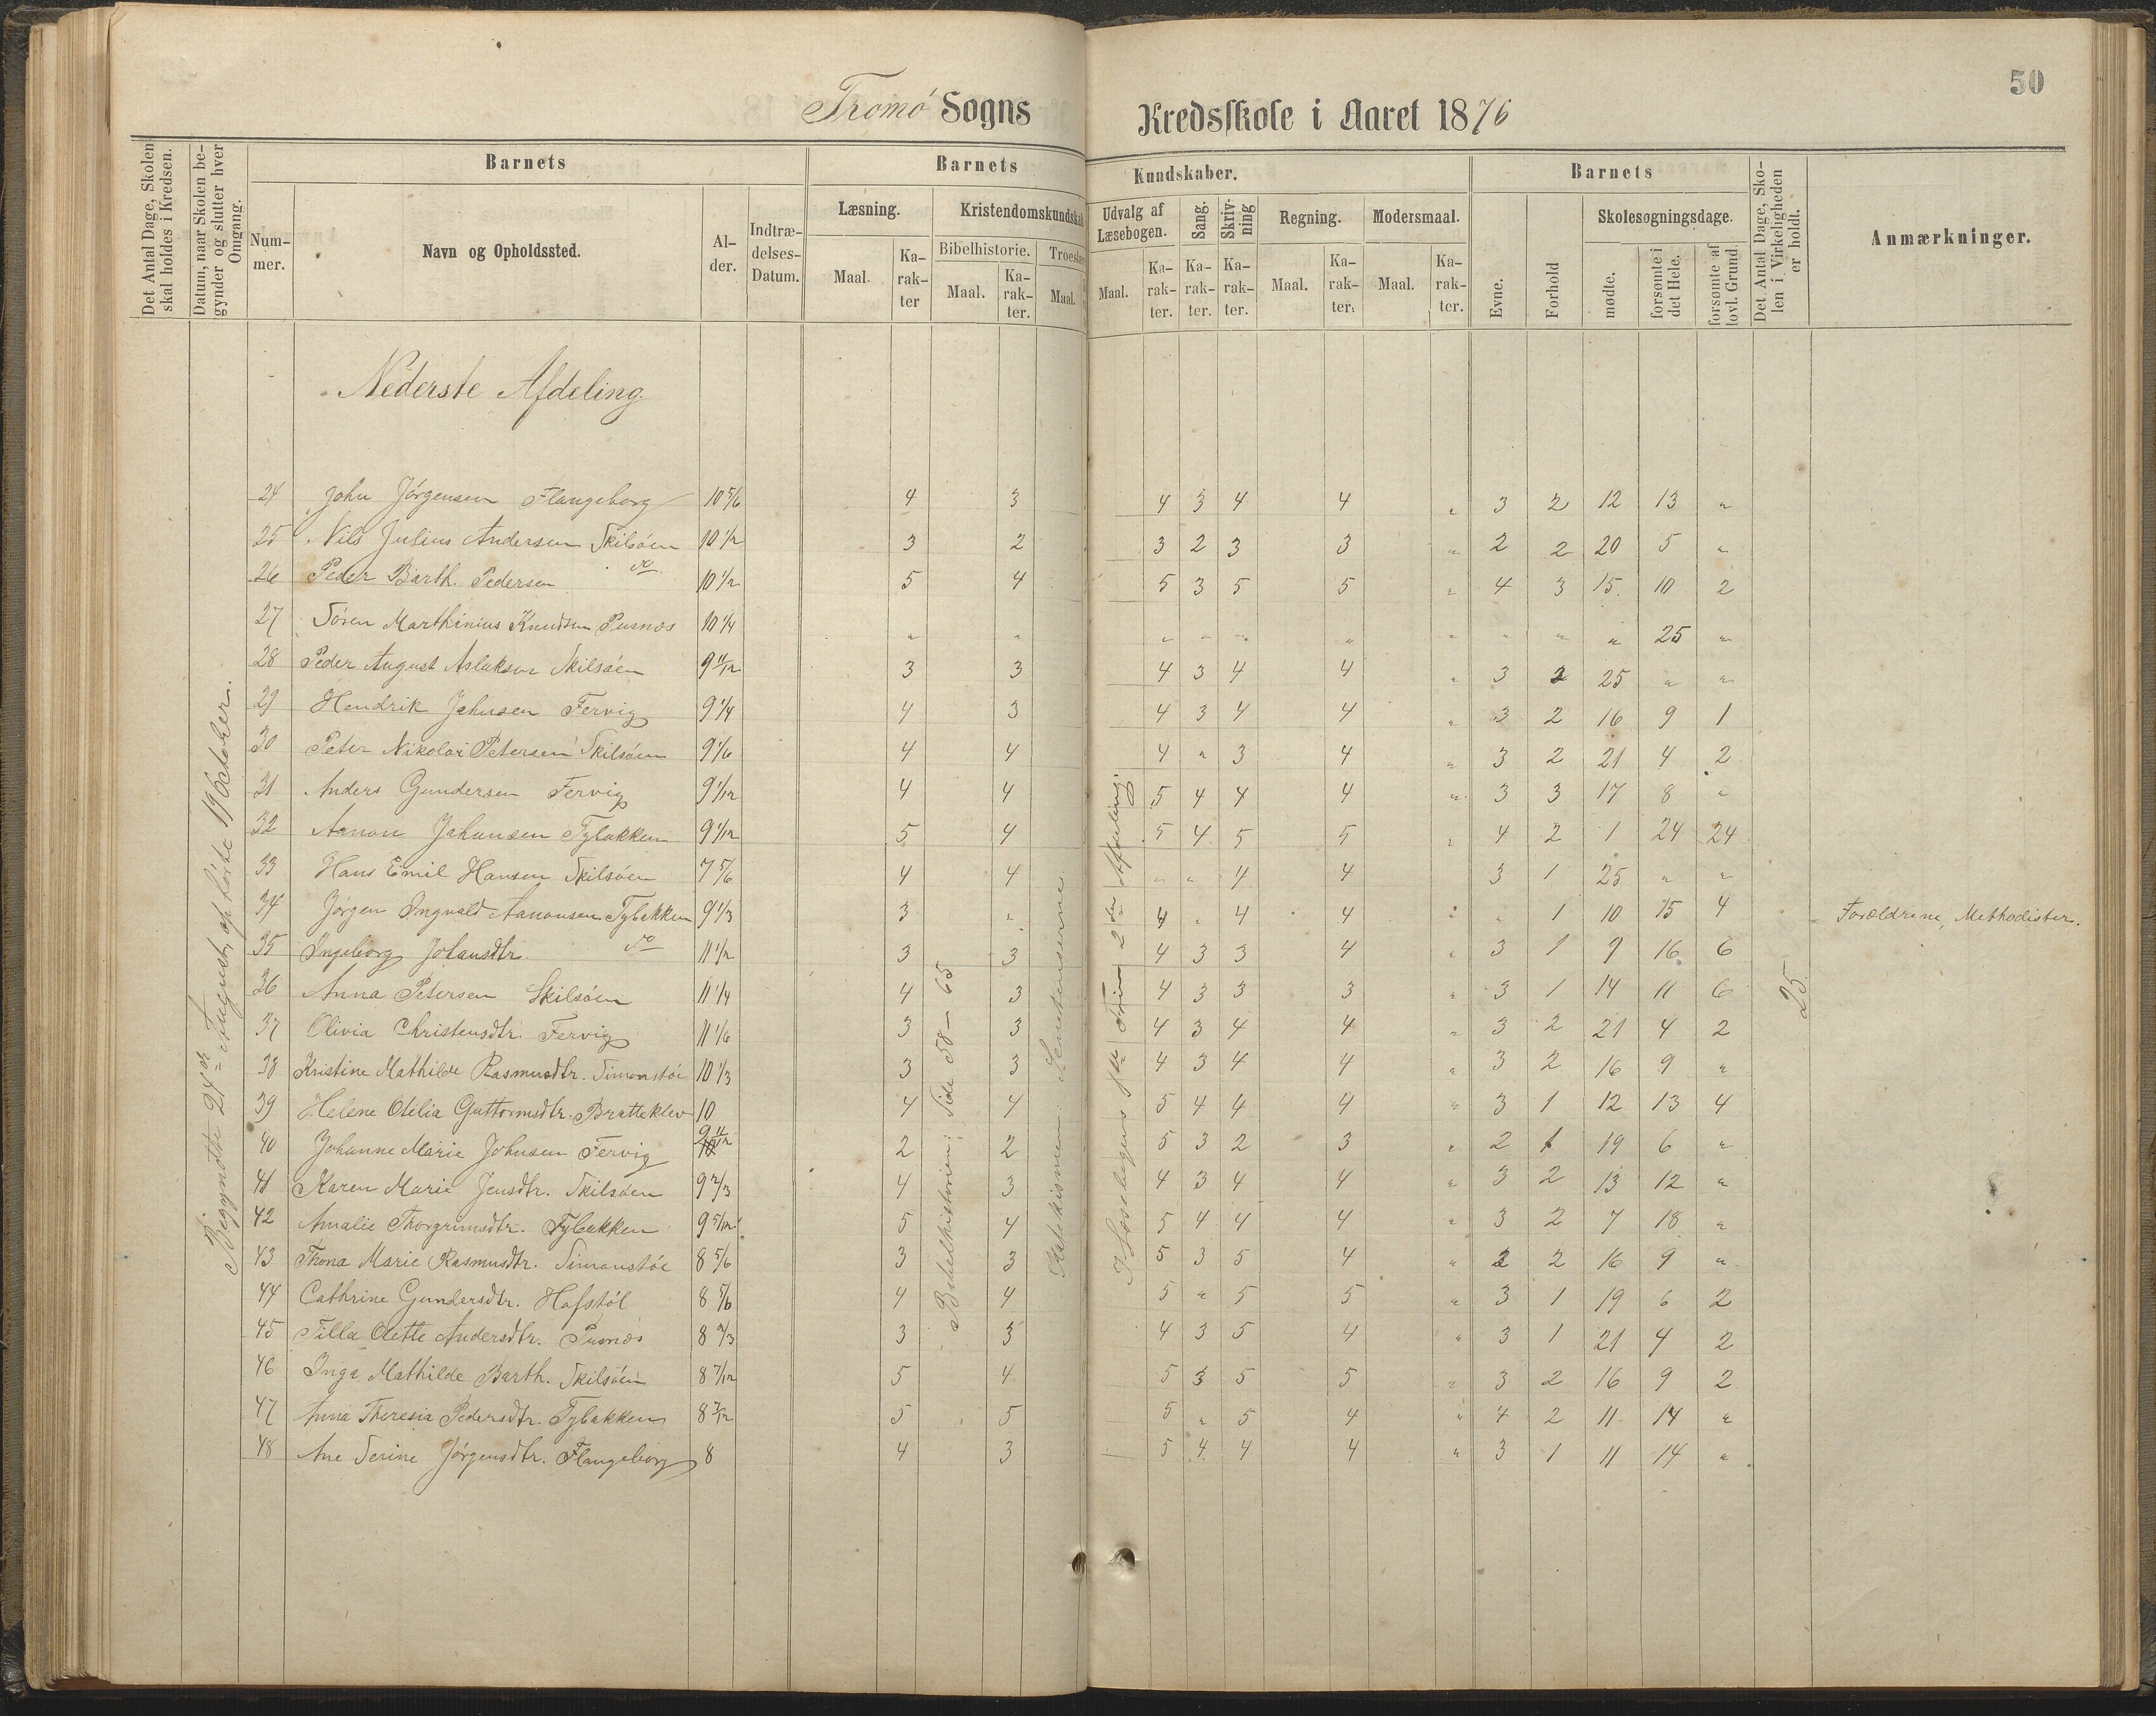 50
Tromø Sogns Kredsskole i Aaret 1876
Det Antal Dage, Skolen skal holdes i Kredsen.
Datum, naar Skolen begynder og slutter hver Omgang.
Barnets
Num-mer.
Navn og Opholdssted.
Al-der.
Indtræ-delses-Datum.
Barnets Kundskaber.
Læsning.
Maal.
Ka-rak-ter
Kristendomskundskab
Bibelhistorie.
Maal.
Ka-rak-ter.
Troeslære
Maal.
Udvalg af Læsebogen.
Maal.
Ka-rak-ter.
Sang.
Ka-rak-ter.
Skriv-ning
Ka-rak-ter.
Regning.
Maal.
Ka-rak-ter.
Modersmaal.
Maal.
Ka-rak-ter.
Barnets
Evne.
Forhold
Skolesøgningsdage.
mødte.
forsømte i det Hele.
forsømte af lovl. Grund.
Det Antal Dage, Sko-len i Virkeligheden er holdt.
Anmærkninger.
Nederste Afdeling.
24 John Jørgensen Flangeborg 10 5/6 4 3 4 3 4 4 " 3 2 12 13 "
25 Nils Julius Andersen Skilsøen 10 1/2 3 2 3 2 3 3 " 2 2 20 5 "
26 Peder Barth. Pedersen do 10 1/2 5 4 5 3 5 5 " 4 3 15 10 2
27 Søren Marthinius Knudsen Pusnæs 10 1/4 " " " " " " " " " " 25 "
28 Peder August Aslaksen Skilsøen 9 11/12 3 3 4 3 4 4 " 3 2 25 " "
29 Hendrik Johnsen Fervig 9 1/4 4 3 4 3 4 4 " 3 2 16 9 1
30 Peter Nikolai Petersen Skilsøen 9 1/6 4 4 4 " 3 4 " 3 2 21 4 2
31 Anders Gundersen Fervig 9 1/12 4 4 5 4 4 4 " 3 3 17 8 "
32 Aanon Johansen Tybakken 9 1/12 5 4 5 4 5 5 " 4 2 1 24 24
33 Hans Emil Hansen Skilsøen 7 5/6 4 4 " " 4 4 3 1 25 " "
34 Jørgen Ingvald Aanonsen Tybakken 9 1/3 3 " 4 " 4 4 " " 1 10 15 4 Forældrene, Methodister.
35 Ingeborg Johansdtr. do 11 1/2 3 3 4 3 3 4 " 3 1 9 16 6
36 Anna Petersen Skilsøen 11 1/4 4 3 4 3 3 3 " 3 1 14 11 6
37 Olivia Christensdtr. Fervig 11 1/6 3 3 4 3 4 4 " 3 2 21 4 2
38 Kristine Mathilde Rasmusdtr. Simonstøe 10 1/3 3 3 4 3 4 4 " 3 2 16 9 "
39 Helene Otelia Guttormsdtr. Bratteklev 10 4 4 5 4 4 4 " 3 1 12 13 4
40 Johanne Marie Johnsen Fervig 9 11/12 2 2 5 3 2 3 " 2 1 19 6 "
41 Karen Marie Jensdtr. Skilsøen 9 2/3 4 3 4 3 4 4 " 3 2 13 12 "
42 Amalie Thorgrimsdtr. Tybakken 9 5/12 5 4 5 4 4 4 " 3 2 7 18 "
43 Thona Marie Rasmusdtr. Simonstøe 8 5/6 3 3 5 3 5 4 " 2 2 16 9 "
44 Cathrine Gundersdtr. Hofstøl 8 5/6 4 4 5 " 5 5 " 3 1 19 6 2
45 Tilla Olette Andersdtr. Pusnæs 8 2/3 3 3 4 3 5 4 " 3 1 21 4 2
46 Inga Mathilde Barth. Skilsøen 8 7/12 5 4 5 3 5 5 " 3 2 16 9 2
47 Anna Theresia Pedersdtr. Tybakken 8 7/12 5 5 5 " 5 4 " 4 2 11 14 "
48 Ane Serine Jørgensdtr. Flangeborg 8 4 3 5 4 4 4 " 3 1 11 14 "
Begyndte 24de August, ophørte 19 October.
Bibelhistorien: Side 58 – 65
Katekismen: Sententserne
I Læsebogens 1ste Trin 2den Afdeling.
25